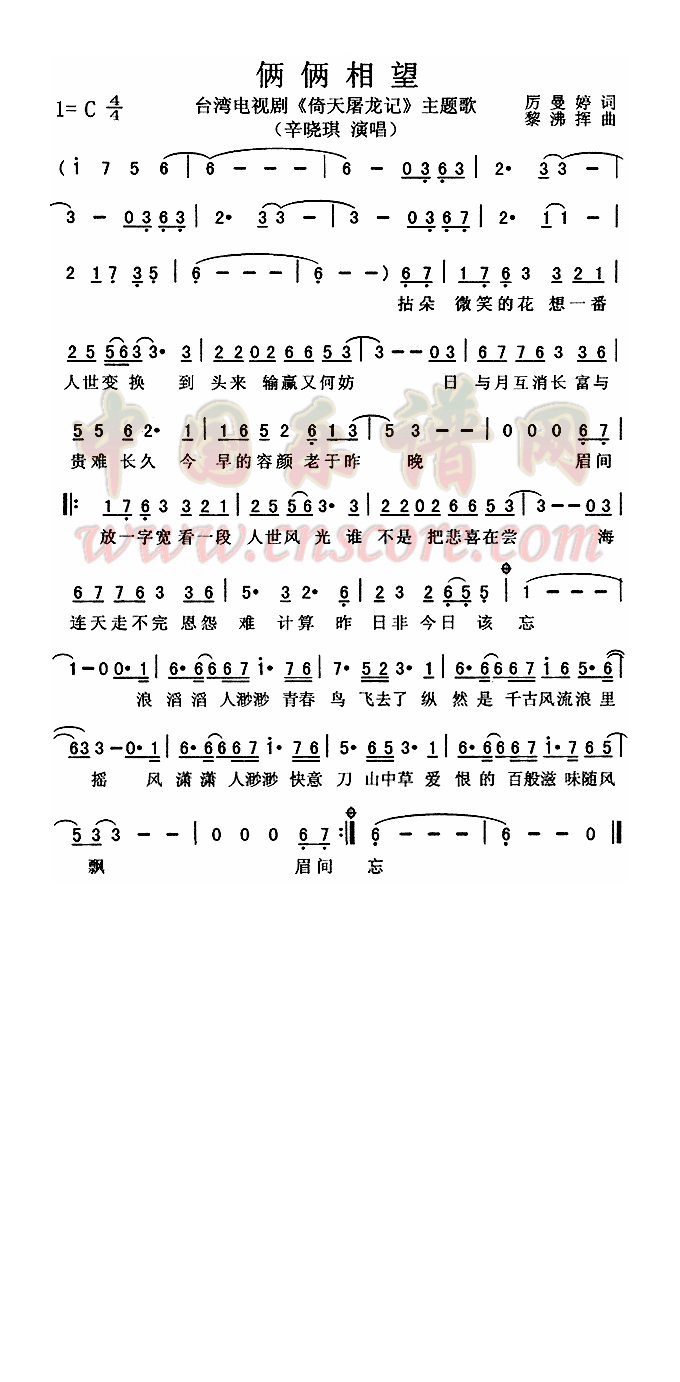 俩俩相望
1=C 4/4 台湾电视剧《倚天屠龙记》主题歌 厉曼婷 词
（辛晓琪 演唱） 黎沸挥 曲
( i 7 5 6 | 6 - - - | 6 - 0363 | 2• 33 - |
3 - 0363 | 2• 33 - | 3 - 0367 | 2• 11 - |
2 17 35 | 6 - - - | 6 - - ) 67 | 1763 321 |
拈朵 微笑的花 想一番
25 5633• 3 | 22026653 | 3--03 | 67763 336 |
人世变换 到 头来 输赢又何妨 日 与月互消长 富与
55 6 2• 1 | 1652 613 | 53-- | 000 67 |
贵难 长久 今 早的容颜 老于昨 晚 眉间
‖: 1763 321 | 25563• 3 | 22026653 | 3--03 |
放一字宽 看一段 人世风光谁 不是 把悲喜在尝 海
67763 336 | 5• 32• 6 | 23 2655 | 1 - - - |
连天走不完 恩怨 难 计算 昨 日非 今日 该 忘
1-00•1 | 6•6667i•76 | 7•523•1 | 6•66675•6 |
浪 滔滔 人渺渺 青春 鸟 飞去了 纵 然是 千古风流浪里
633-0•1 | 6•6667i•76 | 5•653•1 | 6•6667i•765 |
摇 风 潇潇 人渺渺 快意 刀 山中草 爱 恨的 百般滋味随风
533 - - | 0 0 0 67 :‖ 6 - - - | 6 - - 0 ‖
飘 眉间 忘
中国乐谱网
www.cnscore.com